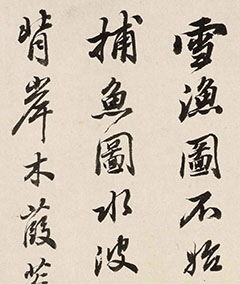 雪漁圖不始
捕魚圖水波
背岸木葭